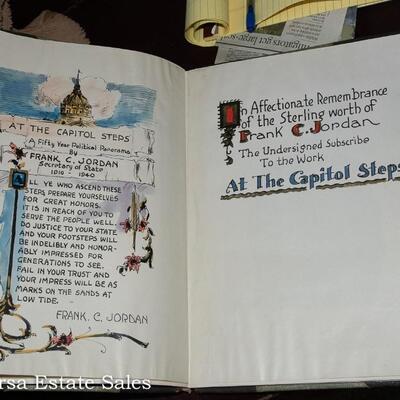 AT THE CAPITOL STEPS
A Fifty Year Political Panorama
By
FRANK C. JORDAN
Secretary of State
1910 - 1940
ALL YE WHO ASCEND THESE
STEPS PREPARE YOURSELVES
FOR GREAT HONORS.
IT IS IN REACH OF YOU TO
SERVE THE PEOPLE WELL,
DO JUSTICE TO YOUR STATE
AND YOUR FOOTSTEPS WILL
BE INDELIBLY AND HONOR-
ABLY IMPRESSED FOR
GENERATIONS TO SEE.
FAIL IN YOUR TRUST AND
YOUR IMPRESS WILL BE AS
MARKS ON THE SANDS AT
LOW TIDE.
FRANK. C. JORDAN
In Affectionate Remembrance
of the Sterling worth of
Frank C. Jordan
The Undersigned Subscribe
To the Work
At The Capitol Steps
get large
rsa Estate Sales